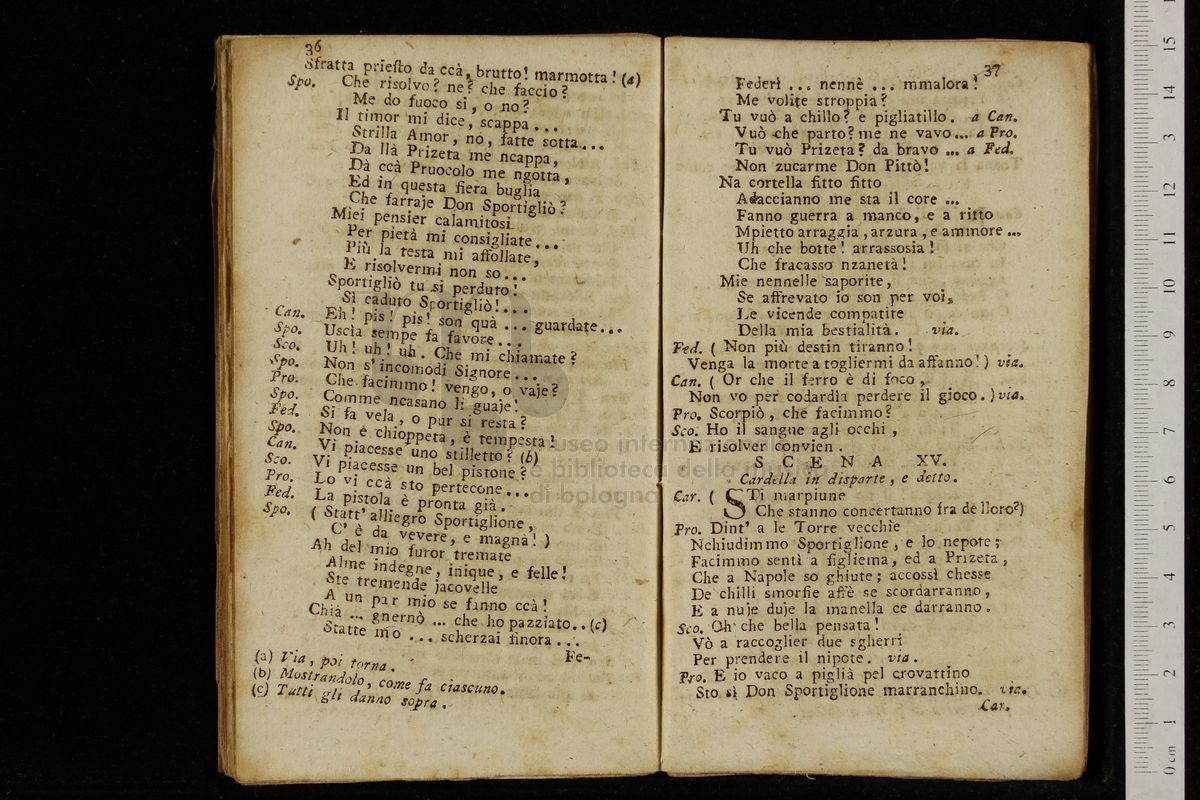 36
Sfratta priesto da ccà, brutto! marmotta! (a)
Spo. Che risolvo? ne? che faccio?
Me do fuoco si, o no?
Il timor mi dice, scappa...
Strilla Amor, no, fatte sotta...
Da llà Prizeta me ncappa,
Dà ccà Pruocolo me ngotta,
Ed in questa fiera buglia
Che farraje Don Sportigliò?
Miei pensier calamitosi
Per pietà mi consigliate...
Più la testa mi affollate,
E risolvermi non so...
Sportigliò tu si perduto!
Si caduto Sportigliò!...
Can. Eh! pis! pis! son quà ... guardate...
Spo. Uscìa sempe fa favore...
Sco. Uh! uh! uh. Che mi chiamate?
Spo. Non s'incomodi Signore...
Pro. Che facimmo! vengo, o vaje?
Spo. Comme ncasano li guaje!
Fed. Si fa vela, o pur si resta?
Spo. Non è chioppeta, è tempesta!
Can. Vi piacesse uno stilletto? (b)
Sco. Vi piacesse un bel pistone?
Pro. Lo vi ccà sto pertecone...
Fed. La pistola è pronta già.
Spo. ( Statt' alliegro Sportiglione,
C' è da vevere, e magnà! )
Ah del mio furor tremate
Alme indegne, inique, e felle!
Ste tremende jacovelle
A un par mio se fanno ccà!
Chià ... gnernò ... che ho pazziato..(c)
Statte mio ... scherzai finora ...
Fe-
(a) Via, poi torna.
(b) Mostrandolo, come fa ciascuno.
(c) Tutti gli danno sopra.
37
Federì ... nennè ... mmalora!
Me volite stroppia?
Tu vuò a chillo? e pigliatillo. a Can.
Vuò che parto? me ne vavo... a Pro.
Tu vuò Prizeta? da bravo ... a Fed.
Non zucarme Don Pittò!
Na cortella fitto fitto
Adaccianno me sta il core ...
Fanno guerra a manco, e a ritto
Mpietto arraggia, arzura, e ammore ...
Uh che botte! arrassosia!
Che fracasso nzanetà!
Mie nennelle saporite,
Se affrevato io son per voi,
Le vicende compatite
Della mia bestialità. via.
Fed. ( Non più destin tiranno!
Venga la morte a togliermi da affanno!) via.
Can. ( Or che il ferro è di foco,
Non vo per codardìa perdere il gioco.) via.
Pro. Scorpiò, che facimmo?
Sco. Ho il sangue agli occhi,
E risolver convien.
SCENA XV.
Cardella in disparte, e detto.
Car. ( STi marpiune
Che stanno concertanno fra de lloro?)
Pro. Dint' a le Torre vecchie
Nchiudimmo Sportiglione, e lo nepote;
Facimmo sentì a figliema, ed a Prizeta,
Che a Napole so ghiute; accossì chesse
De chilli smorfie affè se scordarranno,
E a nuje duje la manella ce darranno.
Sco. Oh che bella pensata!
Vò a raccoglier due sgherri
Per prendere il nipote. via.
Pro. E io vaco a piglià pel crovattino
Sto sì Don Sportiglione marranchino. via.
Car.